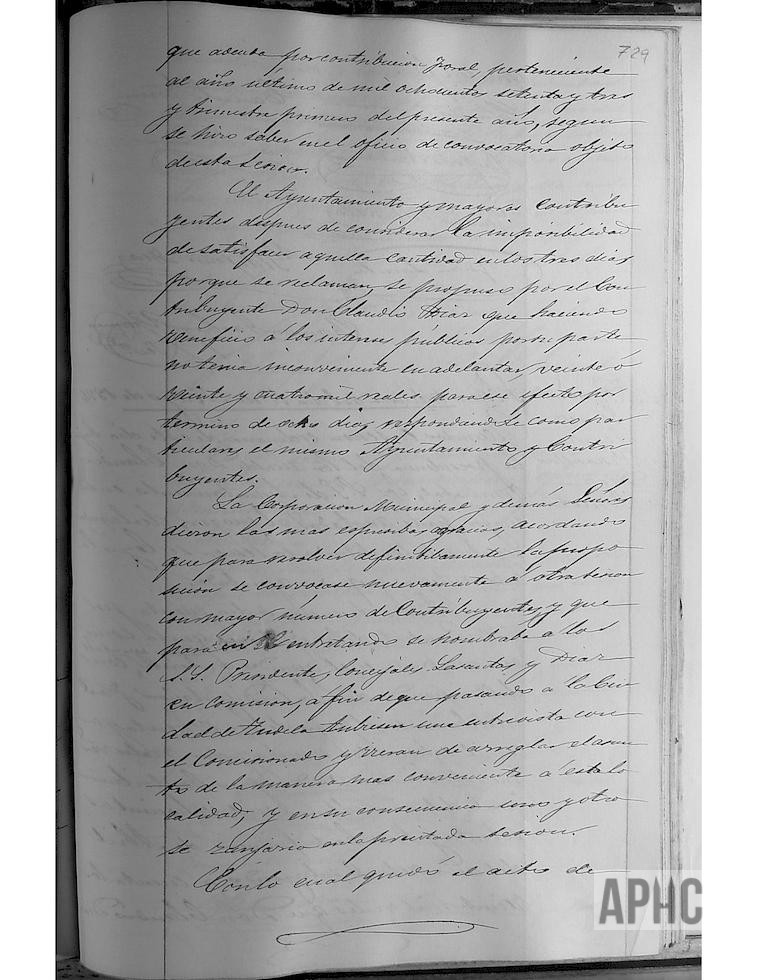 729
que adeuda por contribucion foral, perteneciente
al año ultimo de mil ochocientos setenta y tres
y trimestre primero del presente año, segun
se hizo saber en el oficio de convocatoria objeto
de esta sesion.
El Ayuntamiento y mayores contribu
yentes despues de considerar la imposibilidad
de satisfacer aquella cantidad en los tres dias
por que se reclaman, se propuso por el Con
tribuyente Don Claudio Diaz que haciendo
veneficio á los intereses públicos por su parte
no tenia inconveniente en adelantar, veinte ó
veinte y cuatro mil reales para ese efecto por
termino de ocho dias, respondiendole como par
ticulares el mismo Ayuntamiento y Contri
buyentes.
La Corporacion Municipal y demás Señores
dieron las mas espresibas gracias, acordando
que para resolver definitibamente la propo
sicion se convocase nuevamente á otra sesion
con mayor número de Contribuyentes, y que
para en el entretanto se nombraba a los
S.S. Presidente, Concejales Lasantas y Diaz
en comision, a fin de que pasando á la Ciu
dad de Tudela tubiesen una entrevista con
el Comisionado y vieran de arreglar el asun
to de la manera mas conveniente á esta lo
calidad, y en su consecuencia uno y otro
se zanjaria en la precitada sesion.
Con lo cual quedó el acto de
APHC